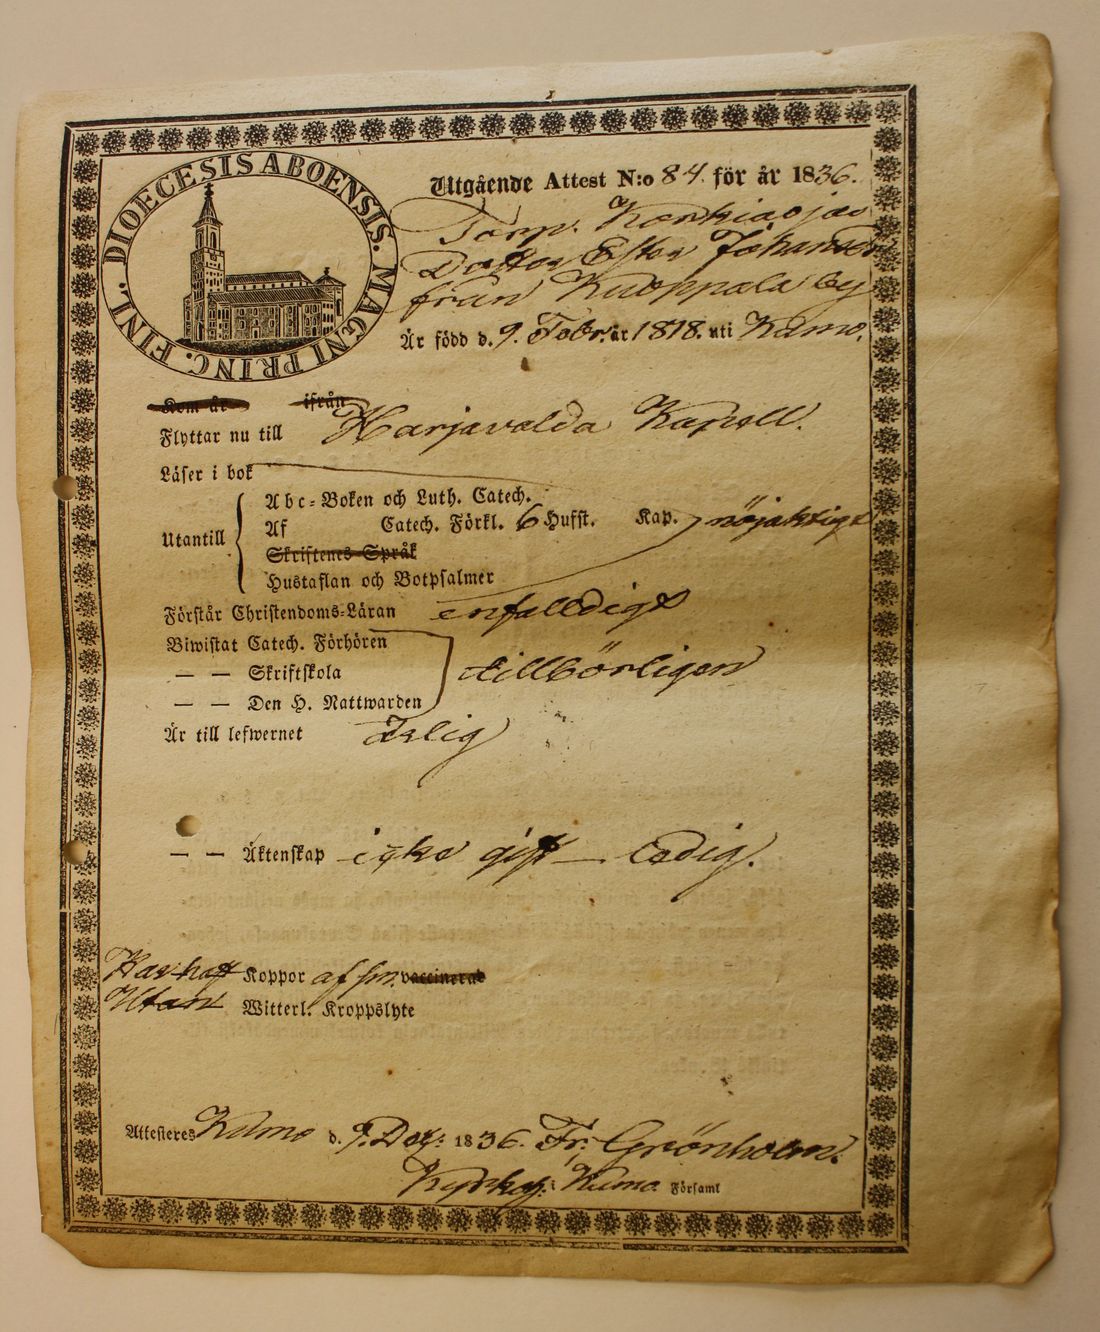 DIOECESIS ABOENSIS. MAGNI PRINC. FINL.
Utgående Attest N:o 84. för år 1836.
Torp.
Dotter Ester Johansdr
från Kuoppala by
Är född d. 9. Febr. år 1818. uti Kumo.
Kom år ifrån
Flyttar nu till Harjavalda Kapell.
Läser i bok
Abc-Boken och Luth. Catech.
Utantill Af Catech. Förkl. 6 Hufst. Kap. nöjaktigt
Skriftenes Språk
Hustaflan och Botpsalmer
Förstår Christendoms-Läran enfalldigt
Biwistat Catech. Förhören
— — Skriftskola tillbörligen
— — Den H. Nattwarden
Är till lefwernet
— — Äktenskap icke gift — ledig.
Koppor vaccinerad
Utan Witterl. Kroppslyte
Attesteres Kumo d. 9. Dec: 1836. Fr: Grönholm.
Kumo Församl